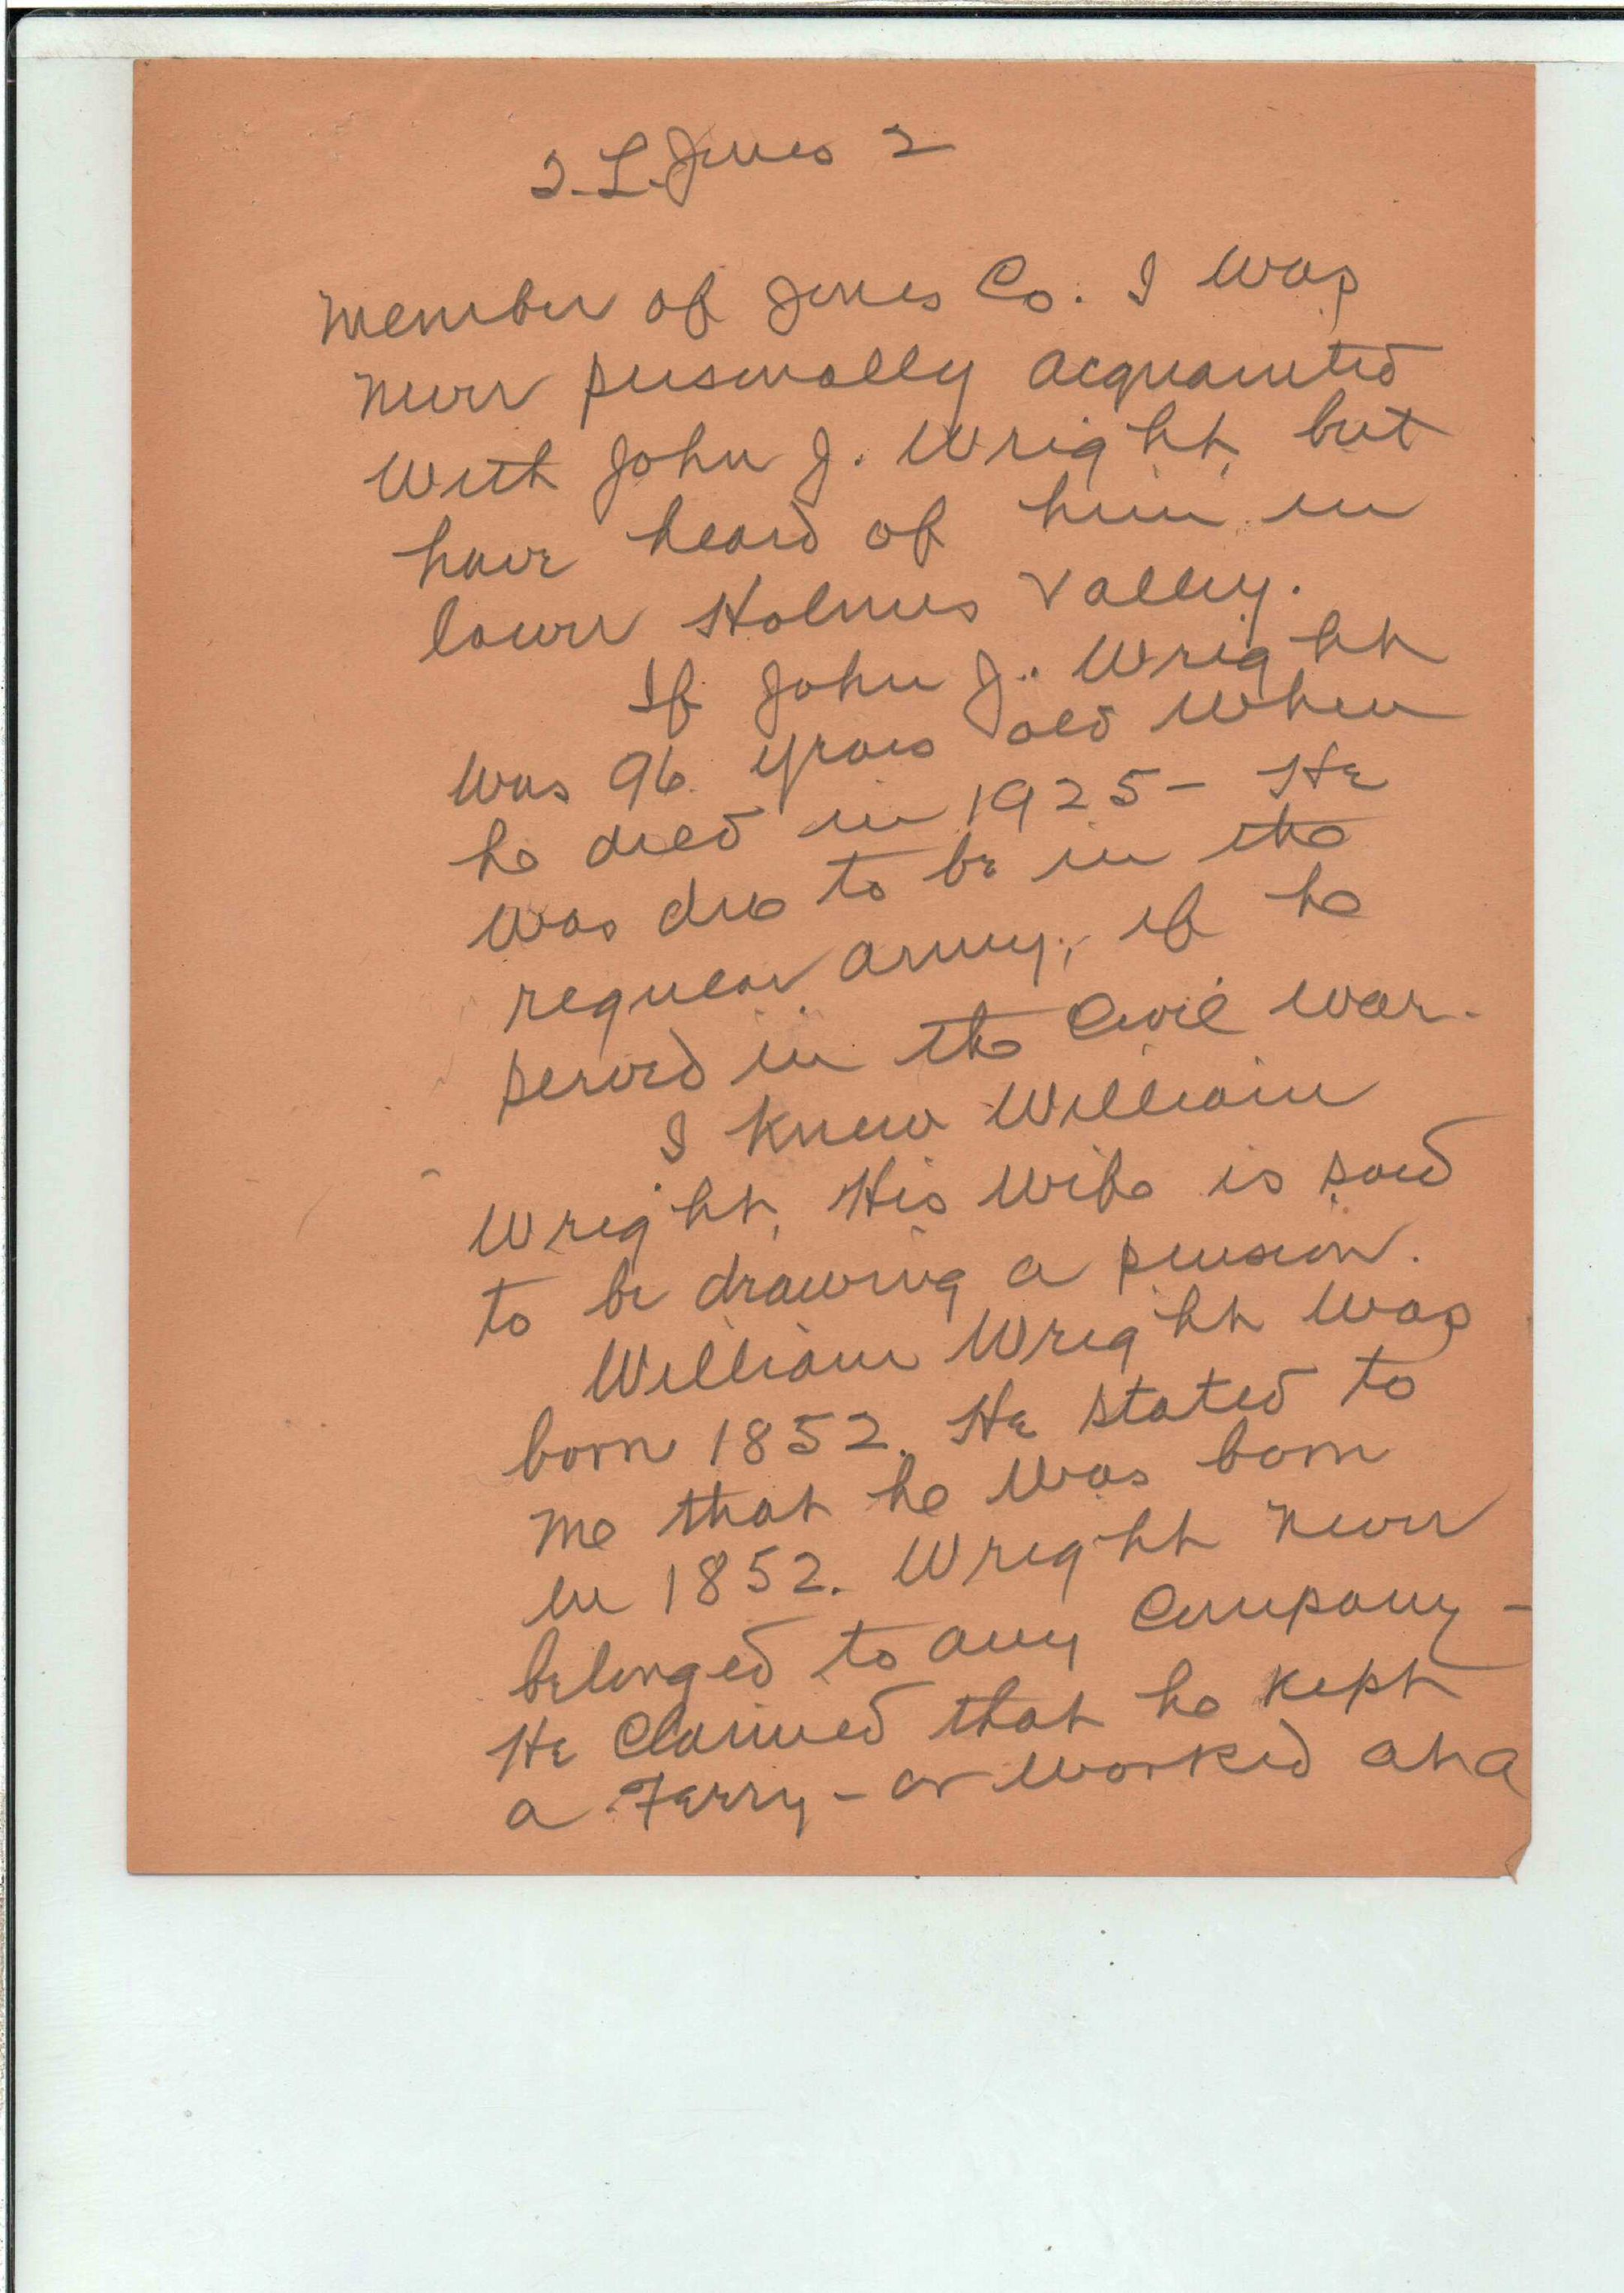 J. L. Jones 2
member of Jones Co. I was
never personally acquainted
with John J. Wright, but
have heard of him in
lower Holmes Valley.
If John J. Wright
was 96 years old when
he died in 1925 - He
was due to be in the
regular army, if he
served in the Civil war.
I knew William
Wright. His wife is said
to be drawing a pension.
William Wright was
born 1852. He stated to
me that he was born
in 1852. Wright never
belonged to any Company -
He claimed that he kept
a Ferry - or worked at a